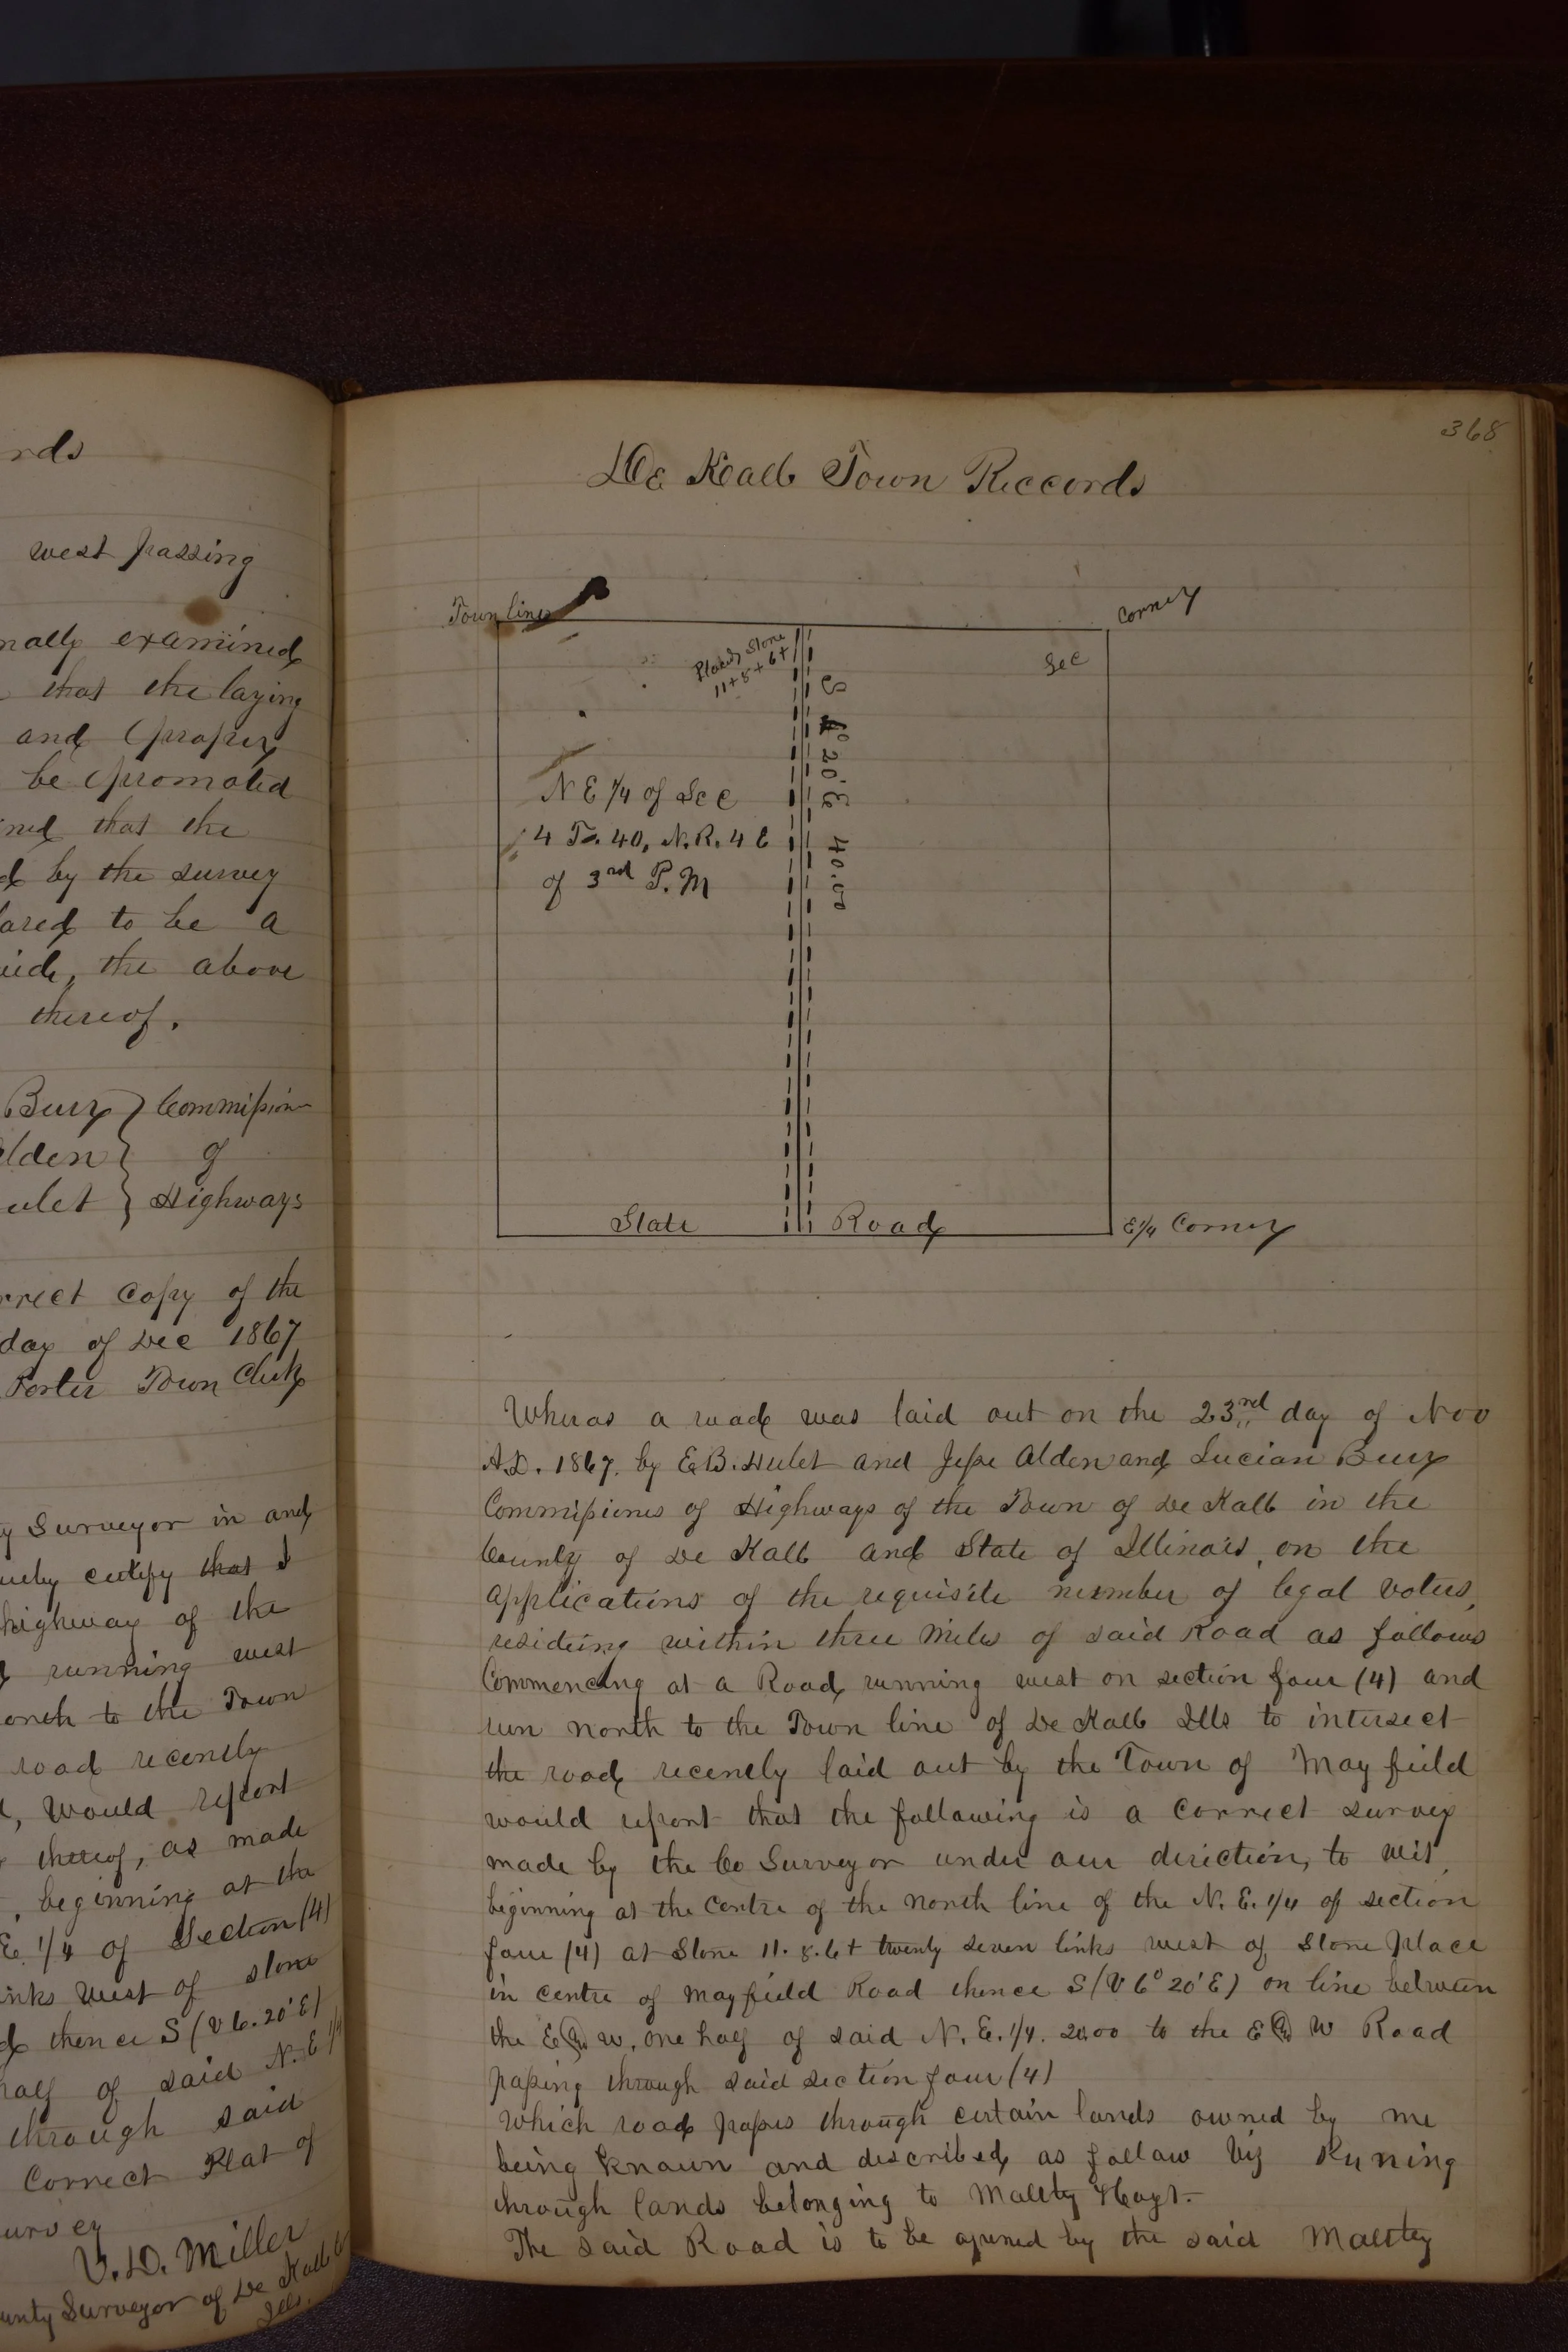 rds
west passing
nally examined
that the laying
and proper
be promoted
ined that the
d by the survey
lared to be a
the above
thereof.
Burz } Commission
lden } of
ulet } Highways
rrect Copy of the
day of Dec 1867
Porter Town Clerk
y Surveyor in and
certify that I
highway of the
running west
north to the Town
road recently
would report
thereof, as made
, beginning at the
E. 1/4 of Section (4)
inks West of stone
thence S (V 6.20'E)
half of said N.E 1/4
through said
Correct Plat of
urvey
V.D. Miller
unty Surveyor of De Kalb Co
Ills.
368
De Kalb Town Reccords
Town line
Corner
Placed Stone
11+8+6+
Sec
S 4° 20'E 40.00
N E 1/4 of Sec
4 To. 40, N.R. 4 E
of 3rd P.M
State Road
E 1/4 Corner
Wheras a road was laid out on the 23rd day of Nov
A.D. 1867. by E.B. Hulet and Jesse Alden and Lucian Burz
Commissiones of Highways of the Town of De Kalb in the
County of De Kalb and State of Illinois, on the
applications of the requisite number of legal voters,
residing within three Miles of said Road as follows
Commencing at a Road running west on section four (4) and
run north to the Town line of De Kalb Ills to intersect
the road recently laid out by the Town of Mayfield
would report that the following is a correct survey
made by the Co Surveyor under our direction, to wit,
beginning at the Centre of the north line of the N. E. 1/4 of section
four (4) at Stone 11. 8. 6+ twenty seven links west of Stone Place
in centre of Mayfield Road thence S (V 6° 20' E) on line between
the E & W. one half of said N. E. 1/4. 20.00 to the E & W Road
passing through said section four (4)
which road passes through certain lands owned by me
being known and described as follow Viz Runing
through lands belonging to Maltby Hoyt.
The said Road is to be opened by the said Maltby